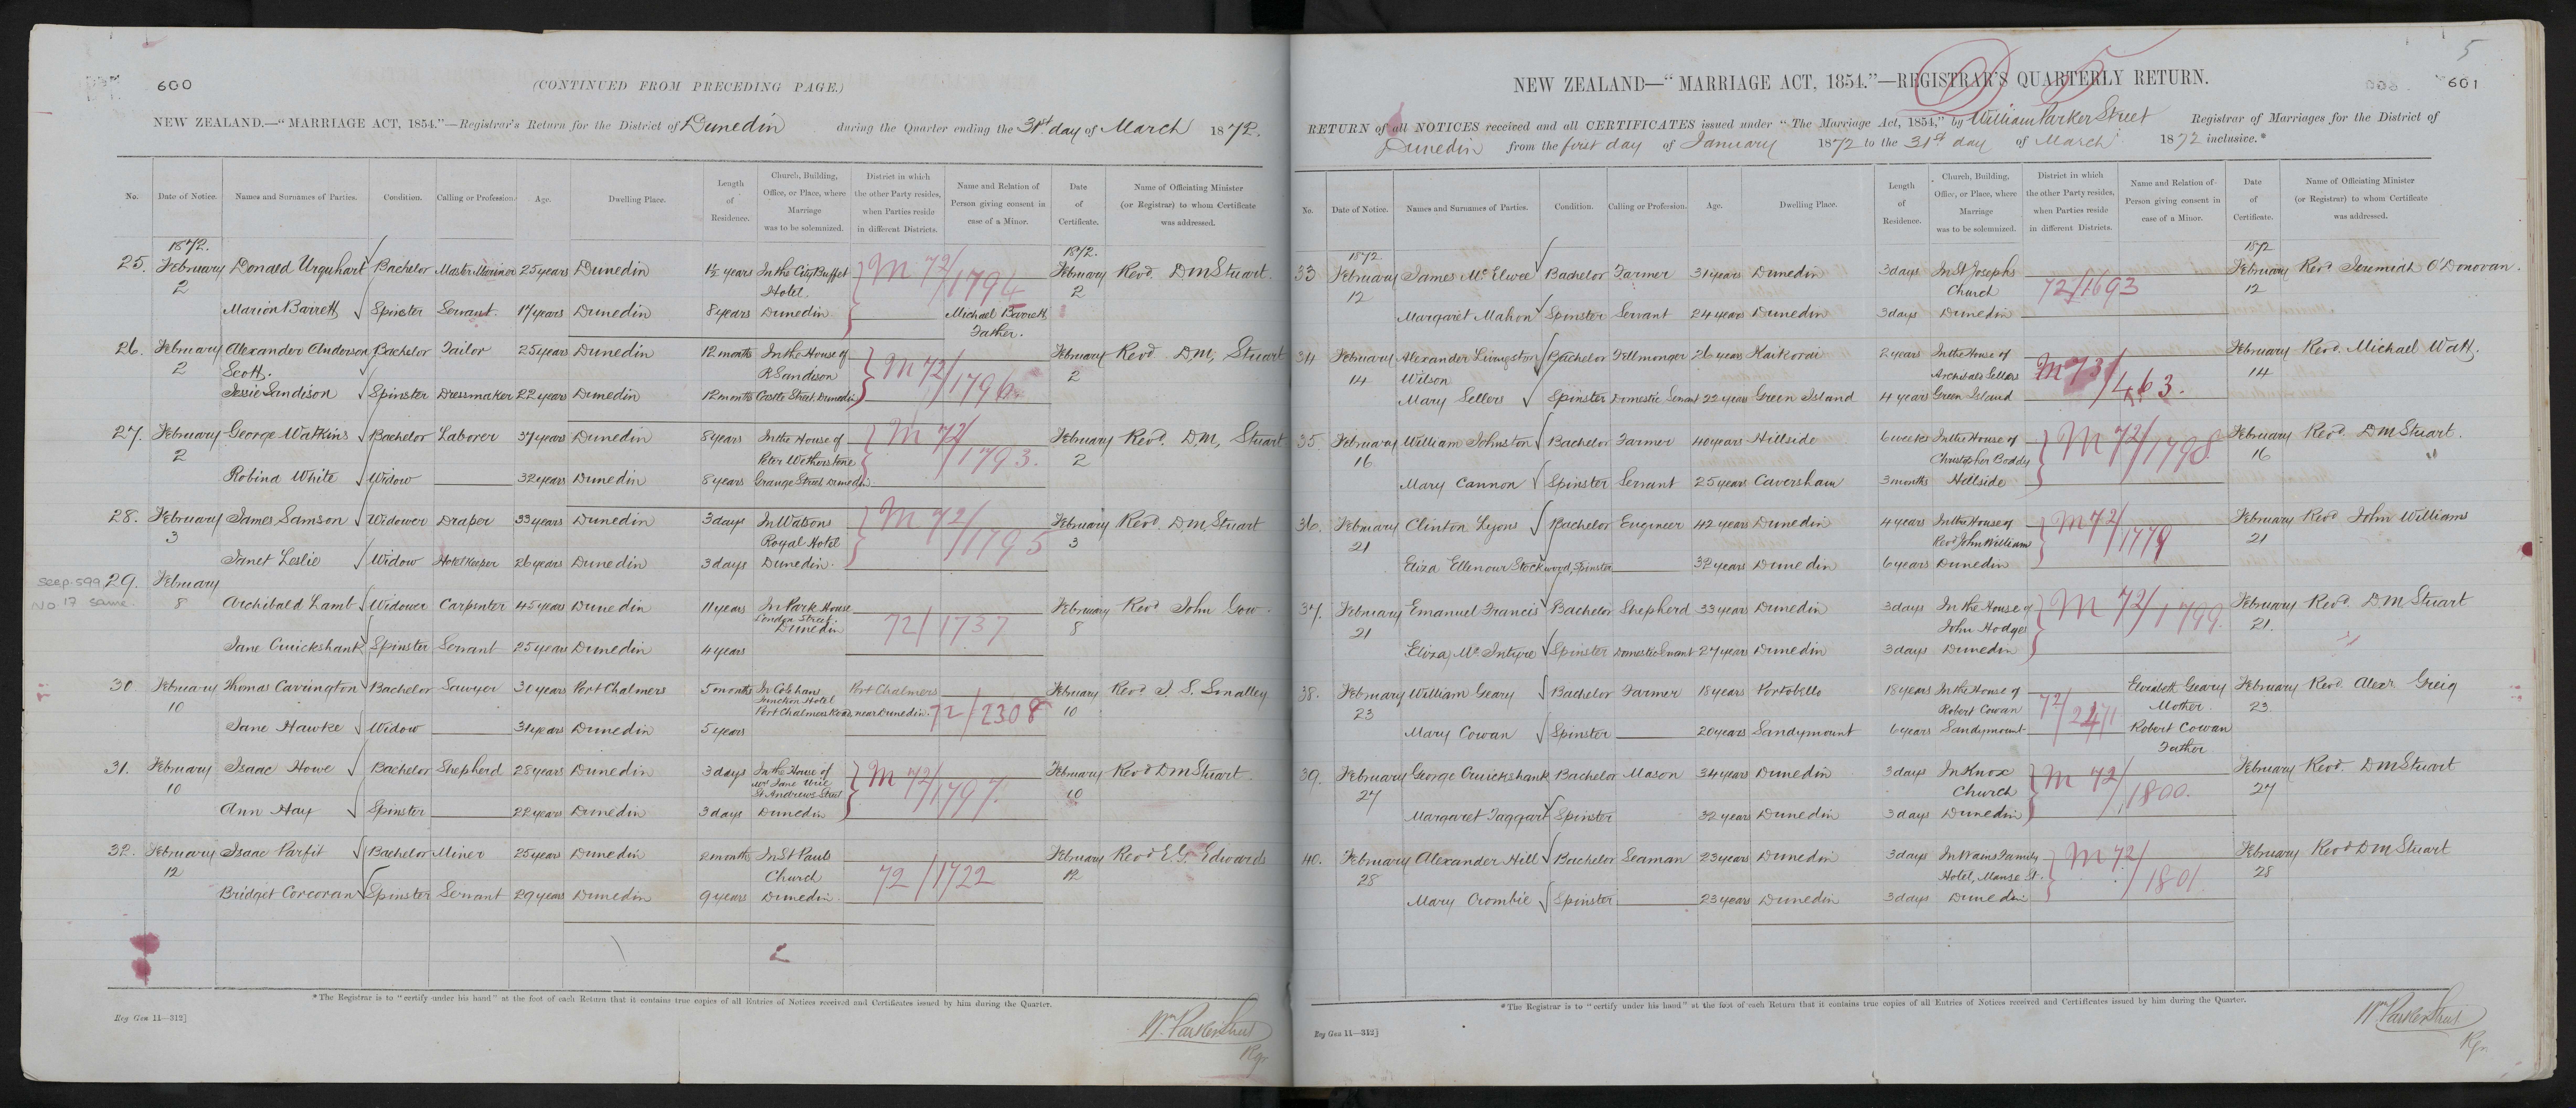 600
(CONTINUED FROM PRECEDING PAGE.)
NEW ZEALAND.—"MARRIAGE ACT, 1854."—Registrar's Return for the District of Dunedin during the Quarter ending the 31st day of March 1872.
No. Date of Notice. Names and Surnames of Parties. Condition. Calling or Profession. Age. Dwelling Place. Length of Residence. Church, Building, Office, or Place, where Marriage was to be solemnized. District in which the other Party resides, when Parties reside in different Districts. Name and Relation of Person giving consent in case of a Minor. Date of Certificate. Name of Officiating Minister (or Registrar) to whom Certificate was addressed.
1872. 1872.
25. February Donald Urquhart Bachelor Master Mariner 25 years Dunedin 1½ years In the City Buffet M 72/1794 February Revd. D M Stuart.
2 Hotel. 2
Marion Barrett Spinster Servant. 17 years Dunedin 8 years Dunedin Michael Barrett
Father.
26. February Alexander Anderson Bachelor Tailor 25 years Dunedin 12 months In the House of M 72/1796 February Revd D M, Stuart
2 Scott. R Sandison 2
Jessie Sandison Spinster Dressmaker 22 years Dunedin 12 months Castle Street, Dunedin
27. February George Watkins Bachelor Laborer 37 years Dunedin 8 years In the House of M 72/1793. February Revd. D. M, Stuart
2 Peter Wotherstone 2
Robina White Widow 32 years Dunedin 8 years Grange Street Dunedin
28. February James Samson Widower Draper 33 years Dunedin 3 days In Watsons M 72/1795 February Revd. D. M Stuart
3 Royal Hotel 3
Janet Leslie Widow Hotel Keeper 26 years Dunedin 3 days Dunedin.
see p. 599 29. February
No 17 same 8 Archibald Lamb Widower Carpenter 45 years Dunedin 11 years In Park House February Revd John Gow.
London Street. 72/1737 8
Dunedin
Jane Cruickshank Spinster Servant 25 years Dunedin 4 years
30. February Thomas Cavington Bachelor Sawyer 30 years Port Chalmers 5 months In Colehans Port Chalmers February Revd J. S. Smalley
10 Junction Hotel 10
Port Chalmers Road, near Dunedin. 72/2308
Jane Hawke Widow 31 years Dunedin 5 years
31. February Isaac Howe Bachelor Shepherd 28 years Dunedin 3 days In the House of M 72/1797. February Revd D M Stuart.
10 Mrs Jane Urie 10
St Andrews Street
Ann Hay Spinster 22 years Dunedin 3 days Dunedin
32. February Isaac Parfit Bachelor Miner 25 years Dunedin 2 months In St Pauls February Revd E. G. Edwards
12 Church 72/1722 12
Bridget Corcoran Spinster Servant 29 years Dunedin 9 years Dunedin.
*The Registrar is to "certify under his hand" at the foot of each Return that it contains true copies of all Entries of Notices received and Certificates issued by him during the Quarter.
Reg Gen 11—312]
Wm. Parker Street
Rgr.
5
601
NEW ZEALAND—"MARRIAGE ACT, 1854."—REGISTRAR'S QUARTERLY RETURN.
RETURN of all NOTICES received and all CERTIFICATES issued under "The Marriage Act, 1854," by William Parker Street Registrar of Marriages for the District of
Dunedin from the first day of January 1872 to the 31st day of March 1872 inclusive.*
No. Date of Notice. Names and Surnames of Parties. Condition. Calling or Profession. Age. Dwelling Place. Length of Residence. Church, Building, Office, or Place, where Marriage was to be solemnized. District in which the other Party resides, when Parties reside in different Districts. Name and Relation of Person giving consent in case of a Minor. Date of Certificate. Name of Officiating Minister (or Registrar) to whom Certificate was addressed.
1872 1872
33 February James McElwee Bachelor Farmer 31 years Dunedin 3 days In St Josephs February Revd Jeremiah O'Donovan.
12 Church 72/1693 12
Margaret Mahon Spinster Servant 24 years Dunedin 3 days Dunedin
34 February Alexander Livingston Bachelor Fellmonger 26 years Kaikorai 2 years In the House of M 73/463. February Revd. Michael Watt.
14 Wilson Archibald Sellers 14
Mary Sellers Spinster Domestic Servant 22 years Green Island 4 years Green Island
35 February William Johnston Bachelor Farmer 40 years Hillside 6 weeks In the House of M 72/1798 February Revd. D M Stuart.
16 Christopher Boddy 16
Mary Cannon Spinster Servant 25 years Caversham 3 months Hillside
36. February Clinton Lyons Bachelor Engineer 42 years Dunedin 4 years In the House of M 72/1779 February Revd John Williams
21 Revd John William 21
Eliza Ellenour Stockwood, Spinster 32 years Dunedin 6 years Dunedin
37. February Emanuel Francis Bachelor Shepherd 33 years Dunedin 3 days In the House of M 72/1799. February Revd. D. M Stuart
21 John Hodges 21.
Eliza McIntyre Spinster Domestic Servant 27 years Dunedin 3 days Dunedin
38. February William Geary Bachelor Farmer 18 years Portobello 18 years In the House of 72/2471 Elizabeth Geary February Revd. Alexr. Greig
23 Robert Cowan Mother. 23.
Mary Cowan Spinster 20 years Sandymount 6 years Sandymount Robert Cowan
Father
39. February George Cruickshank Bachelor Mason 34 years Dunedin 3 days In Knox M 72/1800. February Revd. D M Stuart
27 Church 27
Margaret Taggart Spinster 32 years Dunedin 3 days Dunedin
40. February Alexander Hill Bachelor Seaman 23 years Dunedin 3 days In Wains Family M 72/1801. February Revd D M Stuart
28 Hotel, Manse St. 28
Mary Crombie Spinster 23 years Dunedin 3 days Dunedin
*The Registrar is to "certify under his hand" at the foot of each Return that it contains true copies of all Entries of Notices received and Certificates issued by him during the Quarter.
Reg Gen 11—312]
Wm Parker Street
Rgr.